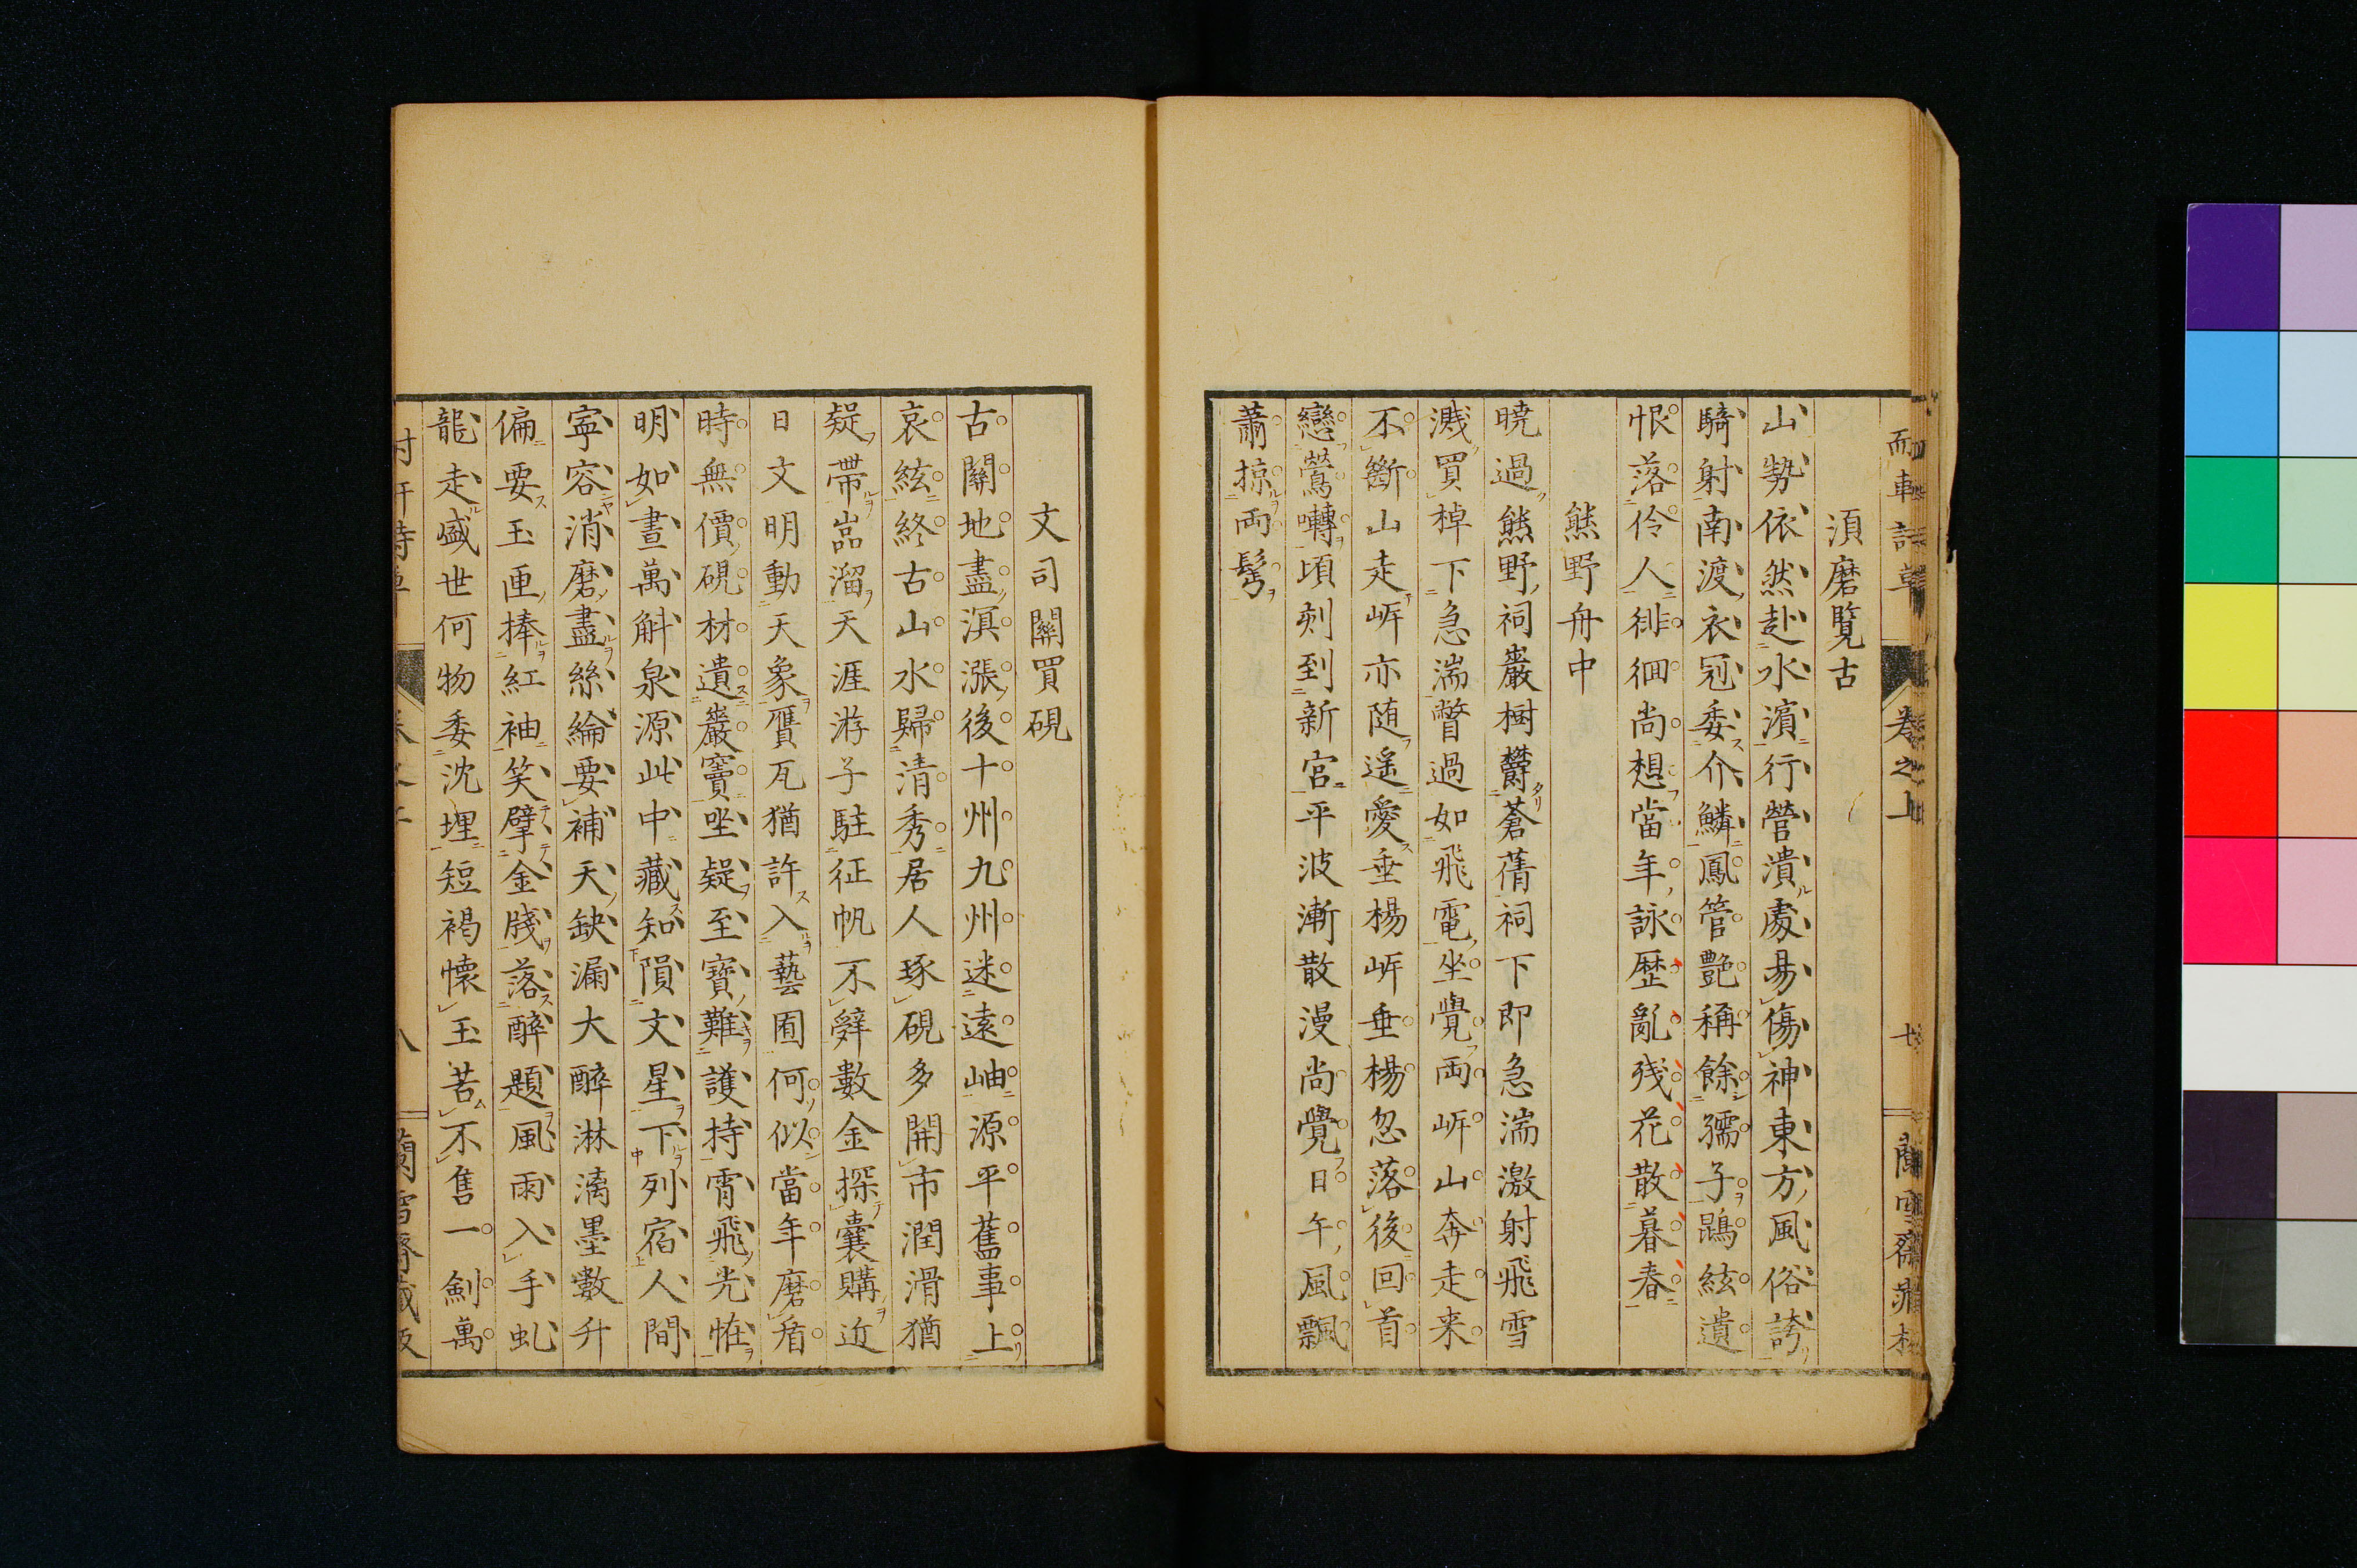 須磨覧古
山勢依然赴水濱行營潰處易傷神東方風俗誇
騎射南渡衣冠委介鱗鳳管艶稱餘孺子鵾絃遺
恨落伶人徘徊尚想當年詠歴亂残花散暮春
熊野舟中
曉過熊野祠巖樹欝蒼蒨祠下即急湍激射飛雪
濺買棹下急湍瞥過如飛電坐覺両岸山奔走来
不斷山走岸亦随遥愛垂楊岸垂楊忽落後回首
戀鶯囀頃刻到新宮平波漸散漫尚覺日午風飄
蕭掠両髩
卷之上
文司關買硯
古關地盡溟漲後十州九州迷遠岫源平舊事上
哀絃終古山水歸清秀居人琢硯多開市潤滑猶
疑帶嵓溜天涯游子駐征帆不辭數金探囊購近
日文明動天象贋瓦猶許入藝囿何似當年磨盾
時無價硯材遺巖竇坐疑至寶難護持霄飛光怪
明如晝萬斛泉源此中藏知隕文星下列宿人間
寧容消磨盡絲綸要補天缺漏大醉淋漓墨數升
偏要玉匣捧紅袖笑擘金牋落醉題風雨入手虬
龍走盛世何物委沈埋短褐懷玉苦不售一劍萬
八